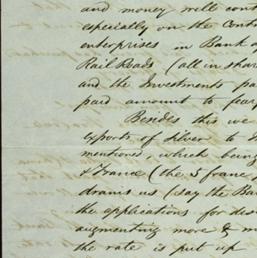 and money will cont
especially on the Cont
enterprises in Bank o
Rail Roads (all in shar
and the Investments pa
paid amount to fear
Besides this we
exports of Silver to
mentioned, which being
& France (the 5 franc
drains us (say the Ba
the applications for des
augmenting more & m
the rate is put up